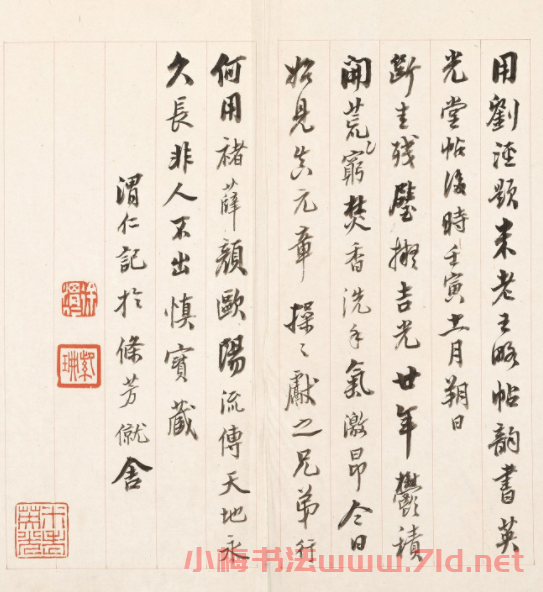 用劉涇題米老王略帖韵書英
光堂帖後時壬寅十一月朔日
斷圭殘璧拟吉光廿年鬱積
開荒窮焚香洗手氣激昂今日
始見真元章操〻獻之兄弟行
何用褚薛顏歐陽流傳天地永
久長非人不出慎寶藏
渭仁記於條芳僦舍
小梅书法www.7ld.net